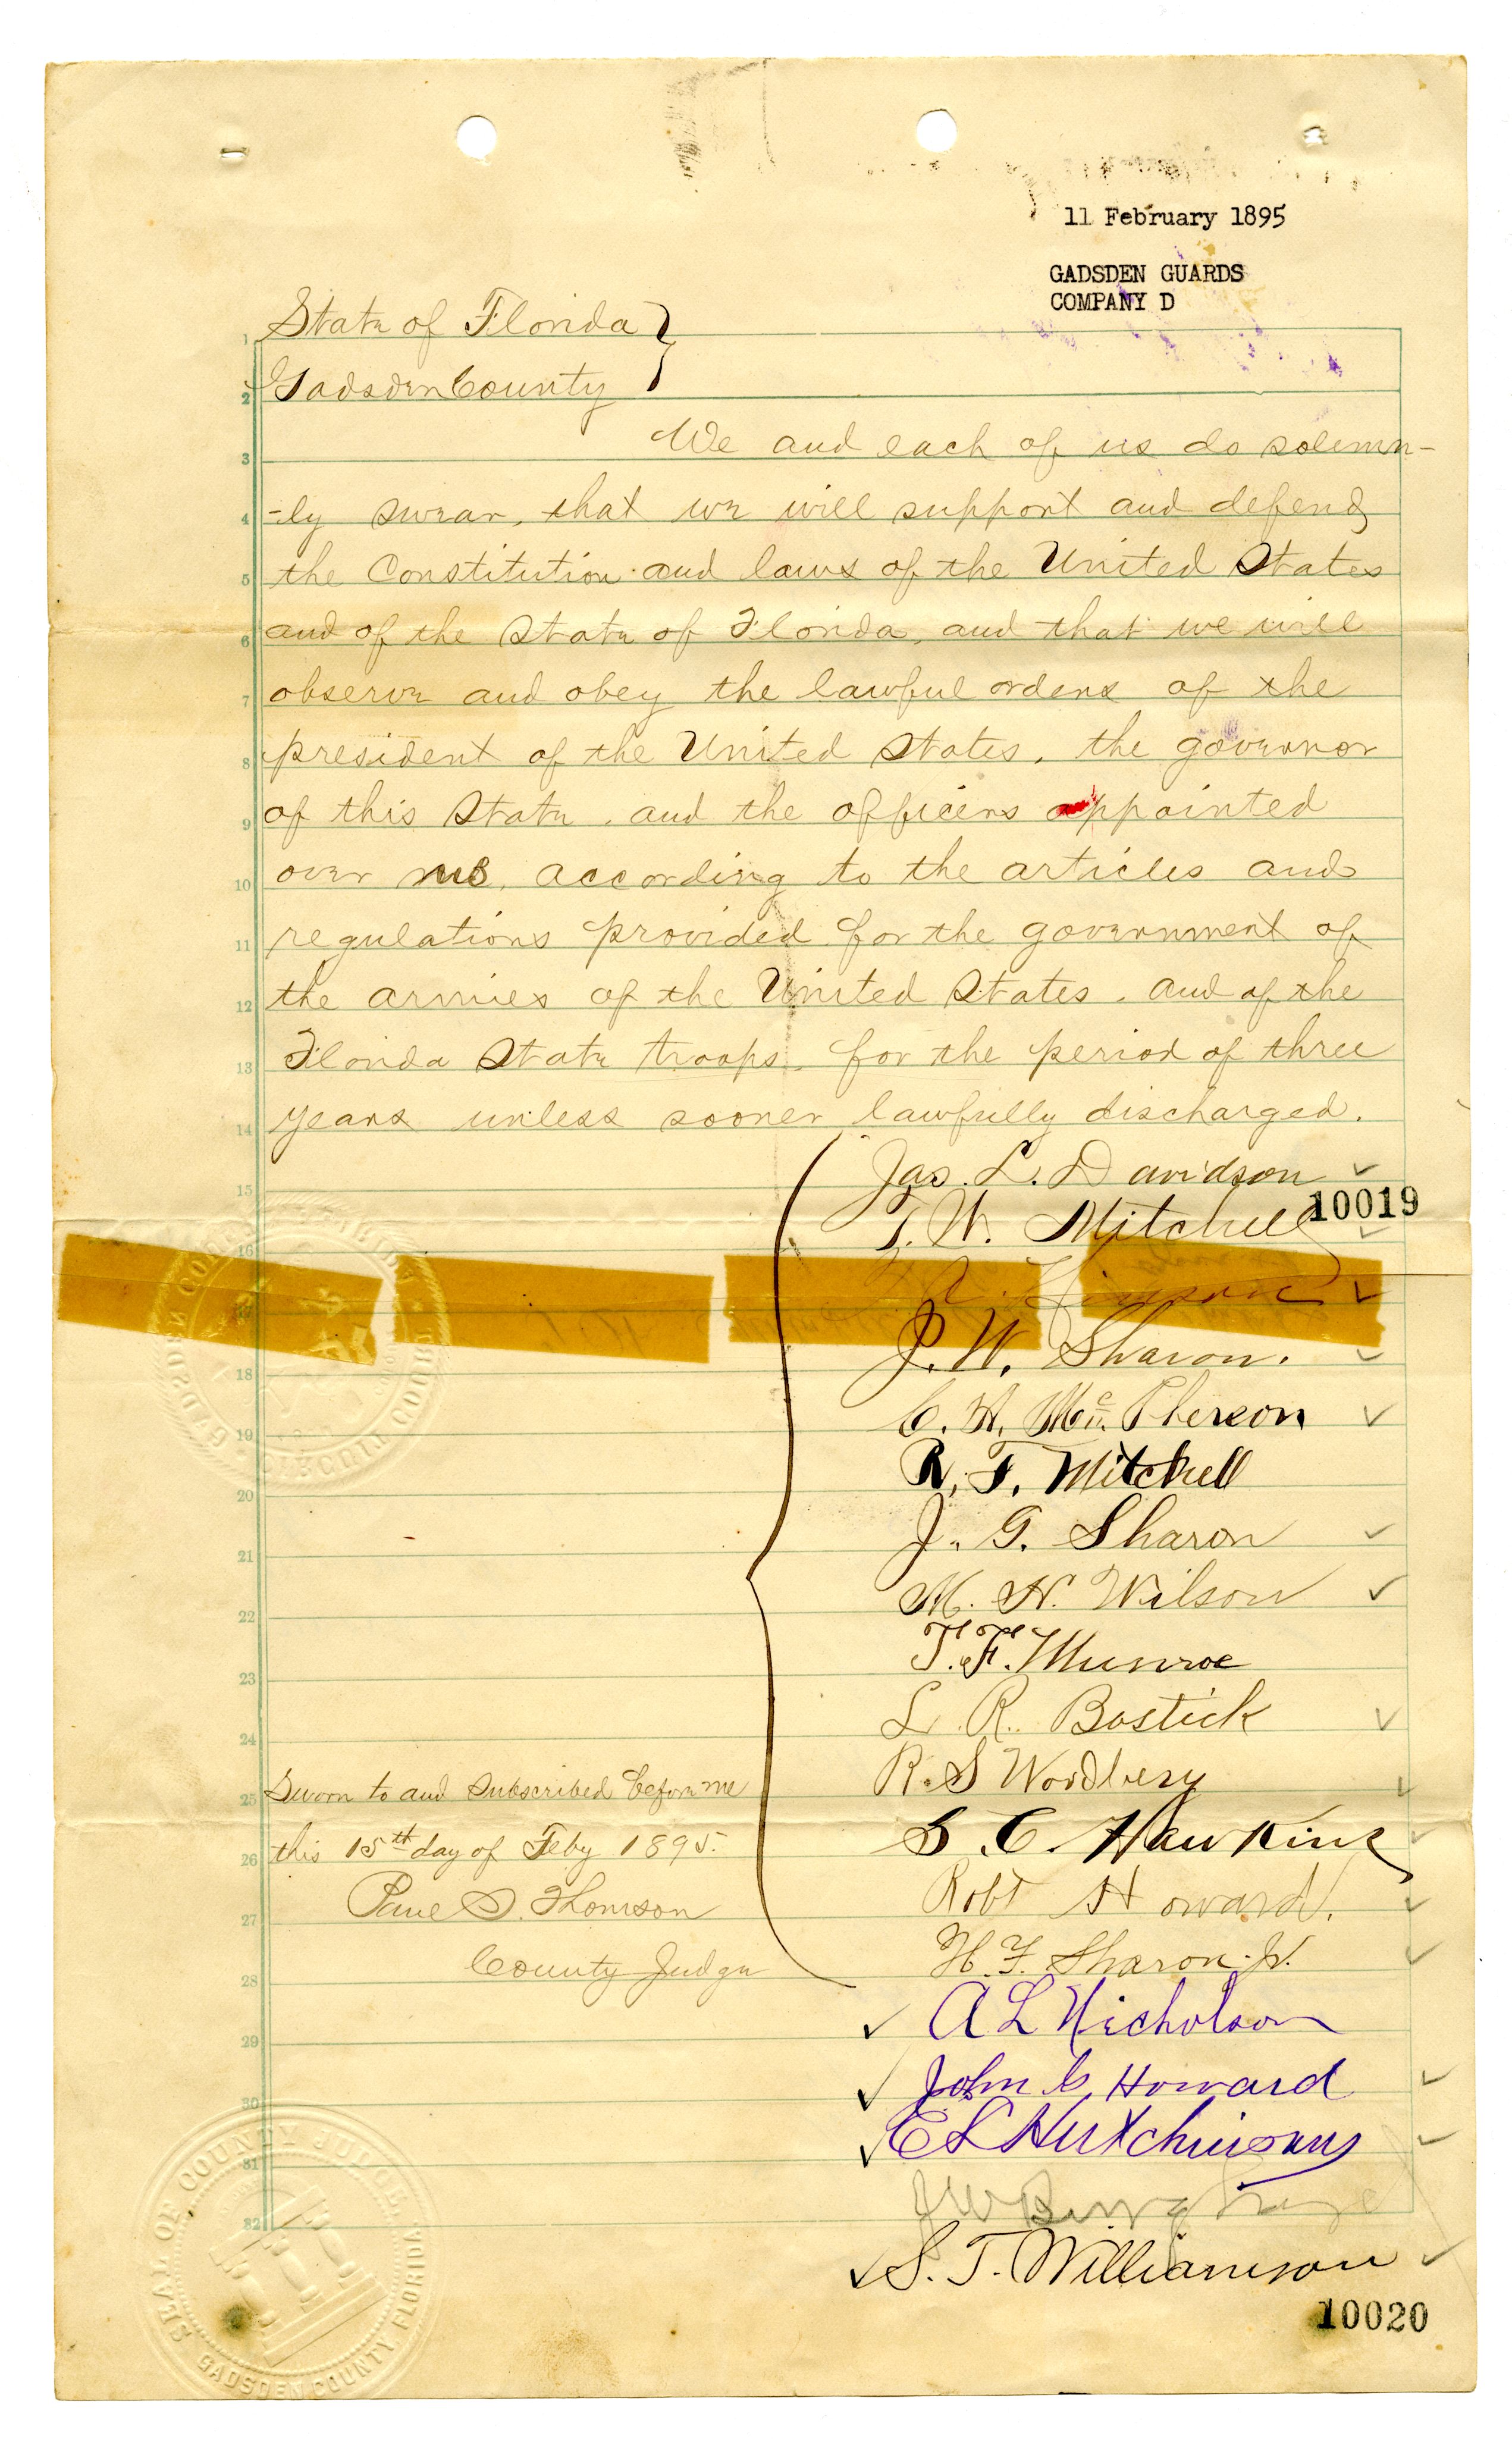 11 February 1895
GADSDEN GUARDS
COMPANY D
State of Florida
Gadsden County
We and each of us do solemn-
-ly swear, that we will support and defend
the Constitution and laws of the United States
and of the State of Florida, and that we will
observe and obey the lawful orders of the
president of the United States, the governor
of this State, and the officers appointed
over us, according to the articles and
regulations provided for the government of
the armies of the United States, and of the
Florida State troops, for the period of three
years unless sooner lawfully discharged.
Jas. L. Davidson
T. W. Mitchell
10019
Hinson
J. W. Sharon.
C. H. McPherson
R. F. Mitchell
J. G. Sharon
M. N. Wilson
T. F. Munroe
L. R. Bostick
R. S Woodbery
S. C. Hawkins
Robt Howard.
H. F. Sharon Jr.
A L Nicholson
John C. Howard
E L Hutchinson
J W
S. T. Williamson
10020
Sworn to and Subscribed before me
this 15th day of Feby 1895.
Paul S. Thomson
County Judge
CIRCUIT COURT
GADSDEN CO
SEAL OF COUNTY JUDGE
GADSDEN COUNTY FLORIDA
1
2
3
4
5
6
7
8
9
10
11
12
13
14
15
16
18
19
20
21
22
23
24
25
26
27
28
29
30
31
32